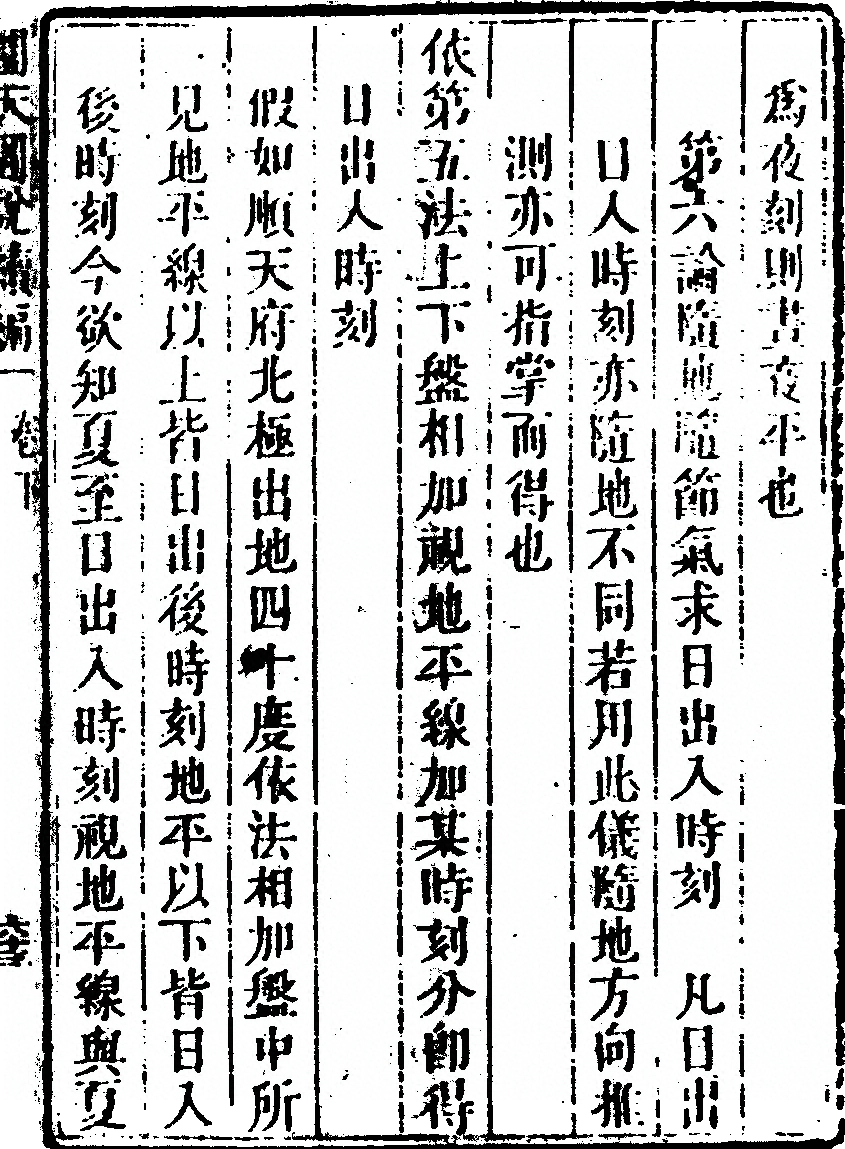 爲夜刻則晝夜平也
第六論隨地隨節氣求日出入時刻　凡日出
日入時刻亦隨地不同若用此儀隨地方向推
測亦可指掌而得也
依第五法上下盤相加視地平線加某時刻分卽得
日出入時刻
假如順天府北極出地四十度依法相加盤中所
見地平線以上皆日出後時刻地平以下皆日入
後時刻今欲知夏至日出入時刻視地平線與夏
圜天圖說續編　卷下